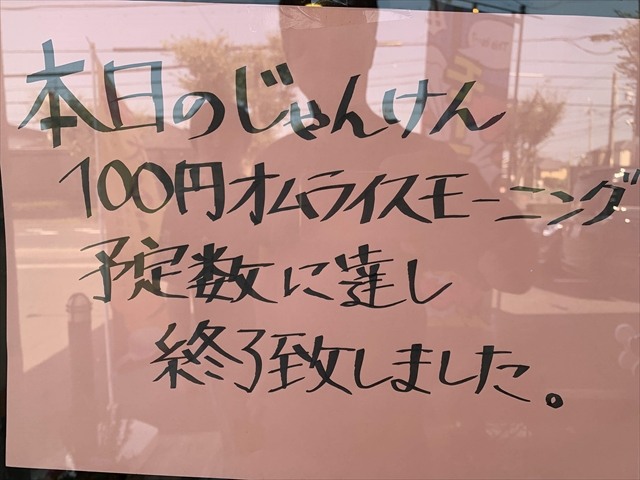 本日のじゃんけん
100円オムライスモーニング
予定数に達し
終了致しました。